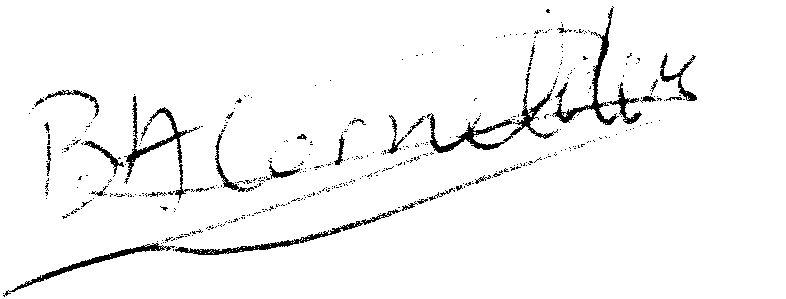 BA Cornelius